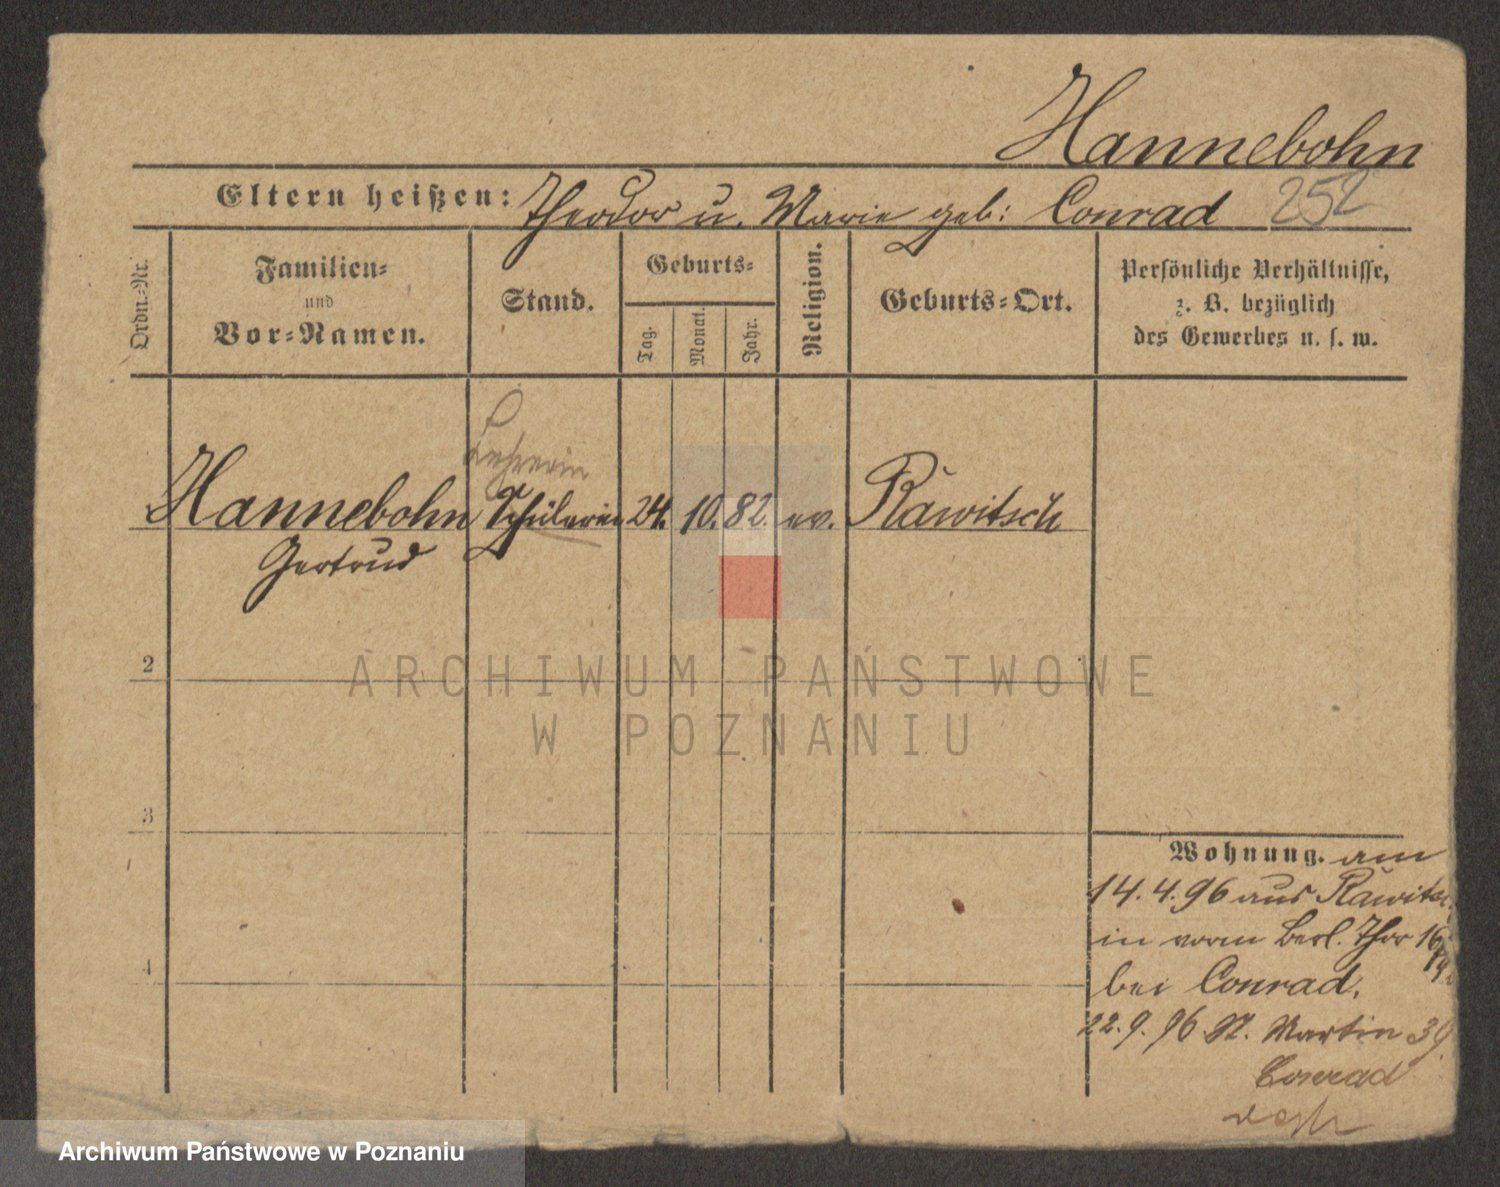 Hannebohn
Eltern heißen: Theodor u. Marie geb: Conrad 252
Ordn.-Nr.
Familien-
und
Vor-Namen.
Stand.
Geburts-
Tag.
Monat.
Jahr.
Religion.
Geburts-Ort.
Persönliche Verhältnisse,
z. B. bezüglich
des Gewerbes u. s. w.
Lehrerin
Hannebohn Schülerin 24. 10. 82. ev. Rawitsch
Gertrud
2
3
4
Wohnung. am
14.4.96 aus Rawitsch
in vorm Berl. Thor 16
bei Conrad.
22.9.96 St. Martin 39.
Conrad
ARCHIWUM PAŃSTWOWE
W POZNANIU
Archiwum Państwowe w Poznaniu